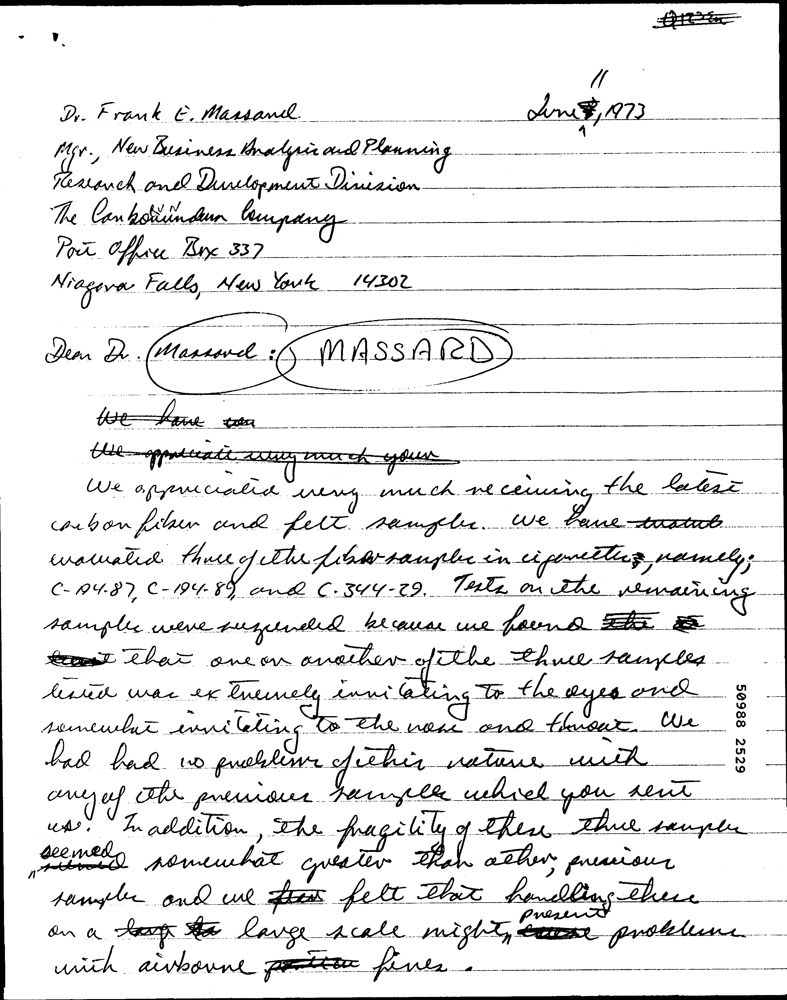 Dr. Frank E. Massard
June 11, 1973
Mgr., New Business Analysis and Planning
Research and Development Division
The Carborundum Company
Post Office Box 337
Niagara Falls, New York 14302
Dear Dr. Massard : MASSARD
We have
We appreciate very much your
We appreciated very much receiving the latest
carbon fiber and felt samples. We have
evaluated three of the fiber samples in cigarettes, namely;
C-194-87, C-194-89, and C-344-29. Tests on the remaining
samples were suspended because we found the
that one or another of the three samples
tested was extremely irritating to the eyes and
somewhat irritating to the nose and throat. We
had had no problems of this nature with
any of the previous samples which you sent
us. In addition, the fragility of these three samples
seemed somewhat greater than other, previous
samples and we felt that handling these
on a large scale might present cause problems
with airborne fines.
50988 2529